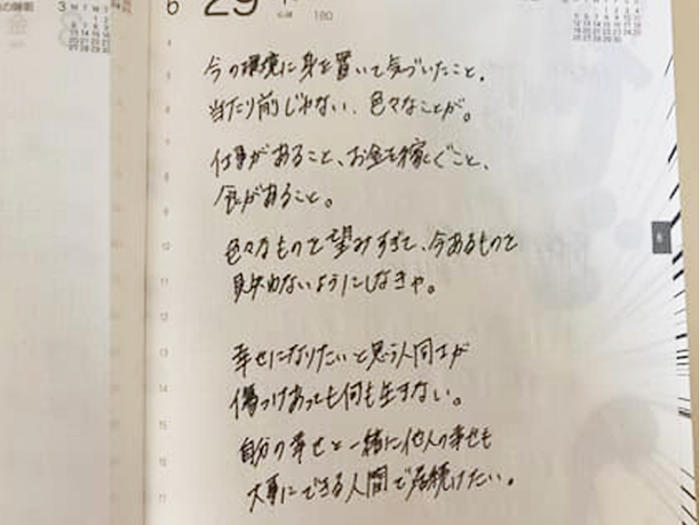 6 29
180
今の環境に身を置いて気づいたこと。
当たり前じゃない、色々なことが。
仕事があること、お金を稼ぐこと、
食があること。
色々なものを望みすぎて、今あるものを
見失わないようにしなきゃ。
幸せになりたいと思う人同士が
傷つけあっても何も生まない。
自分の幸せと一緒に他人の幸せも
大事にできる人間で居続けたい。